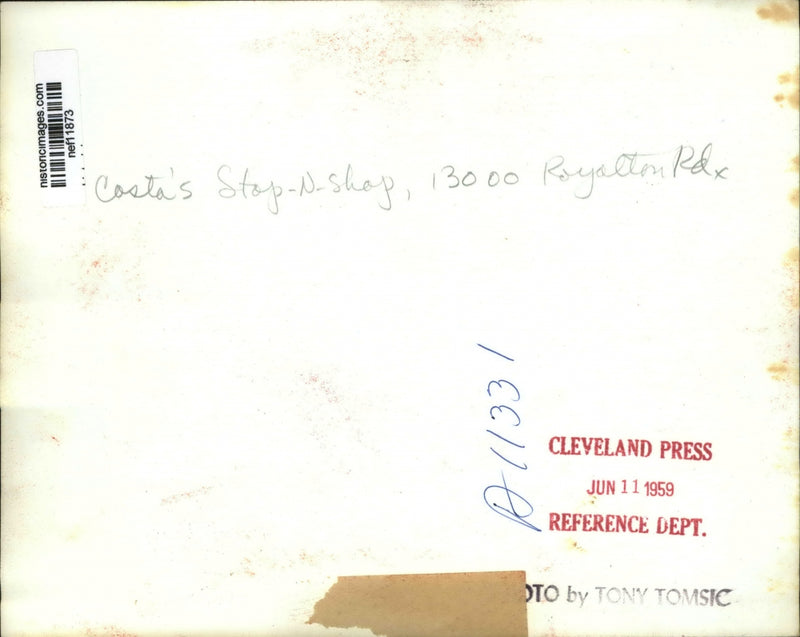 historicimages.com
nef11873
Costa's Stop-N-Shop, 13000 Royalton Rd
A11331
CLEVELAND PRESS
JUN 11 1959
REFERENCE DEPT.
OTO by TONY TOMSIC